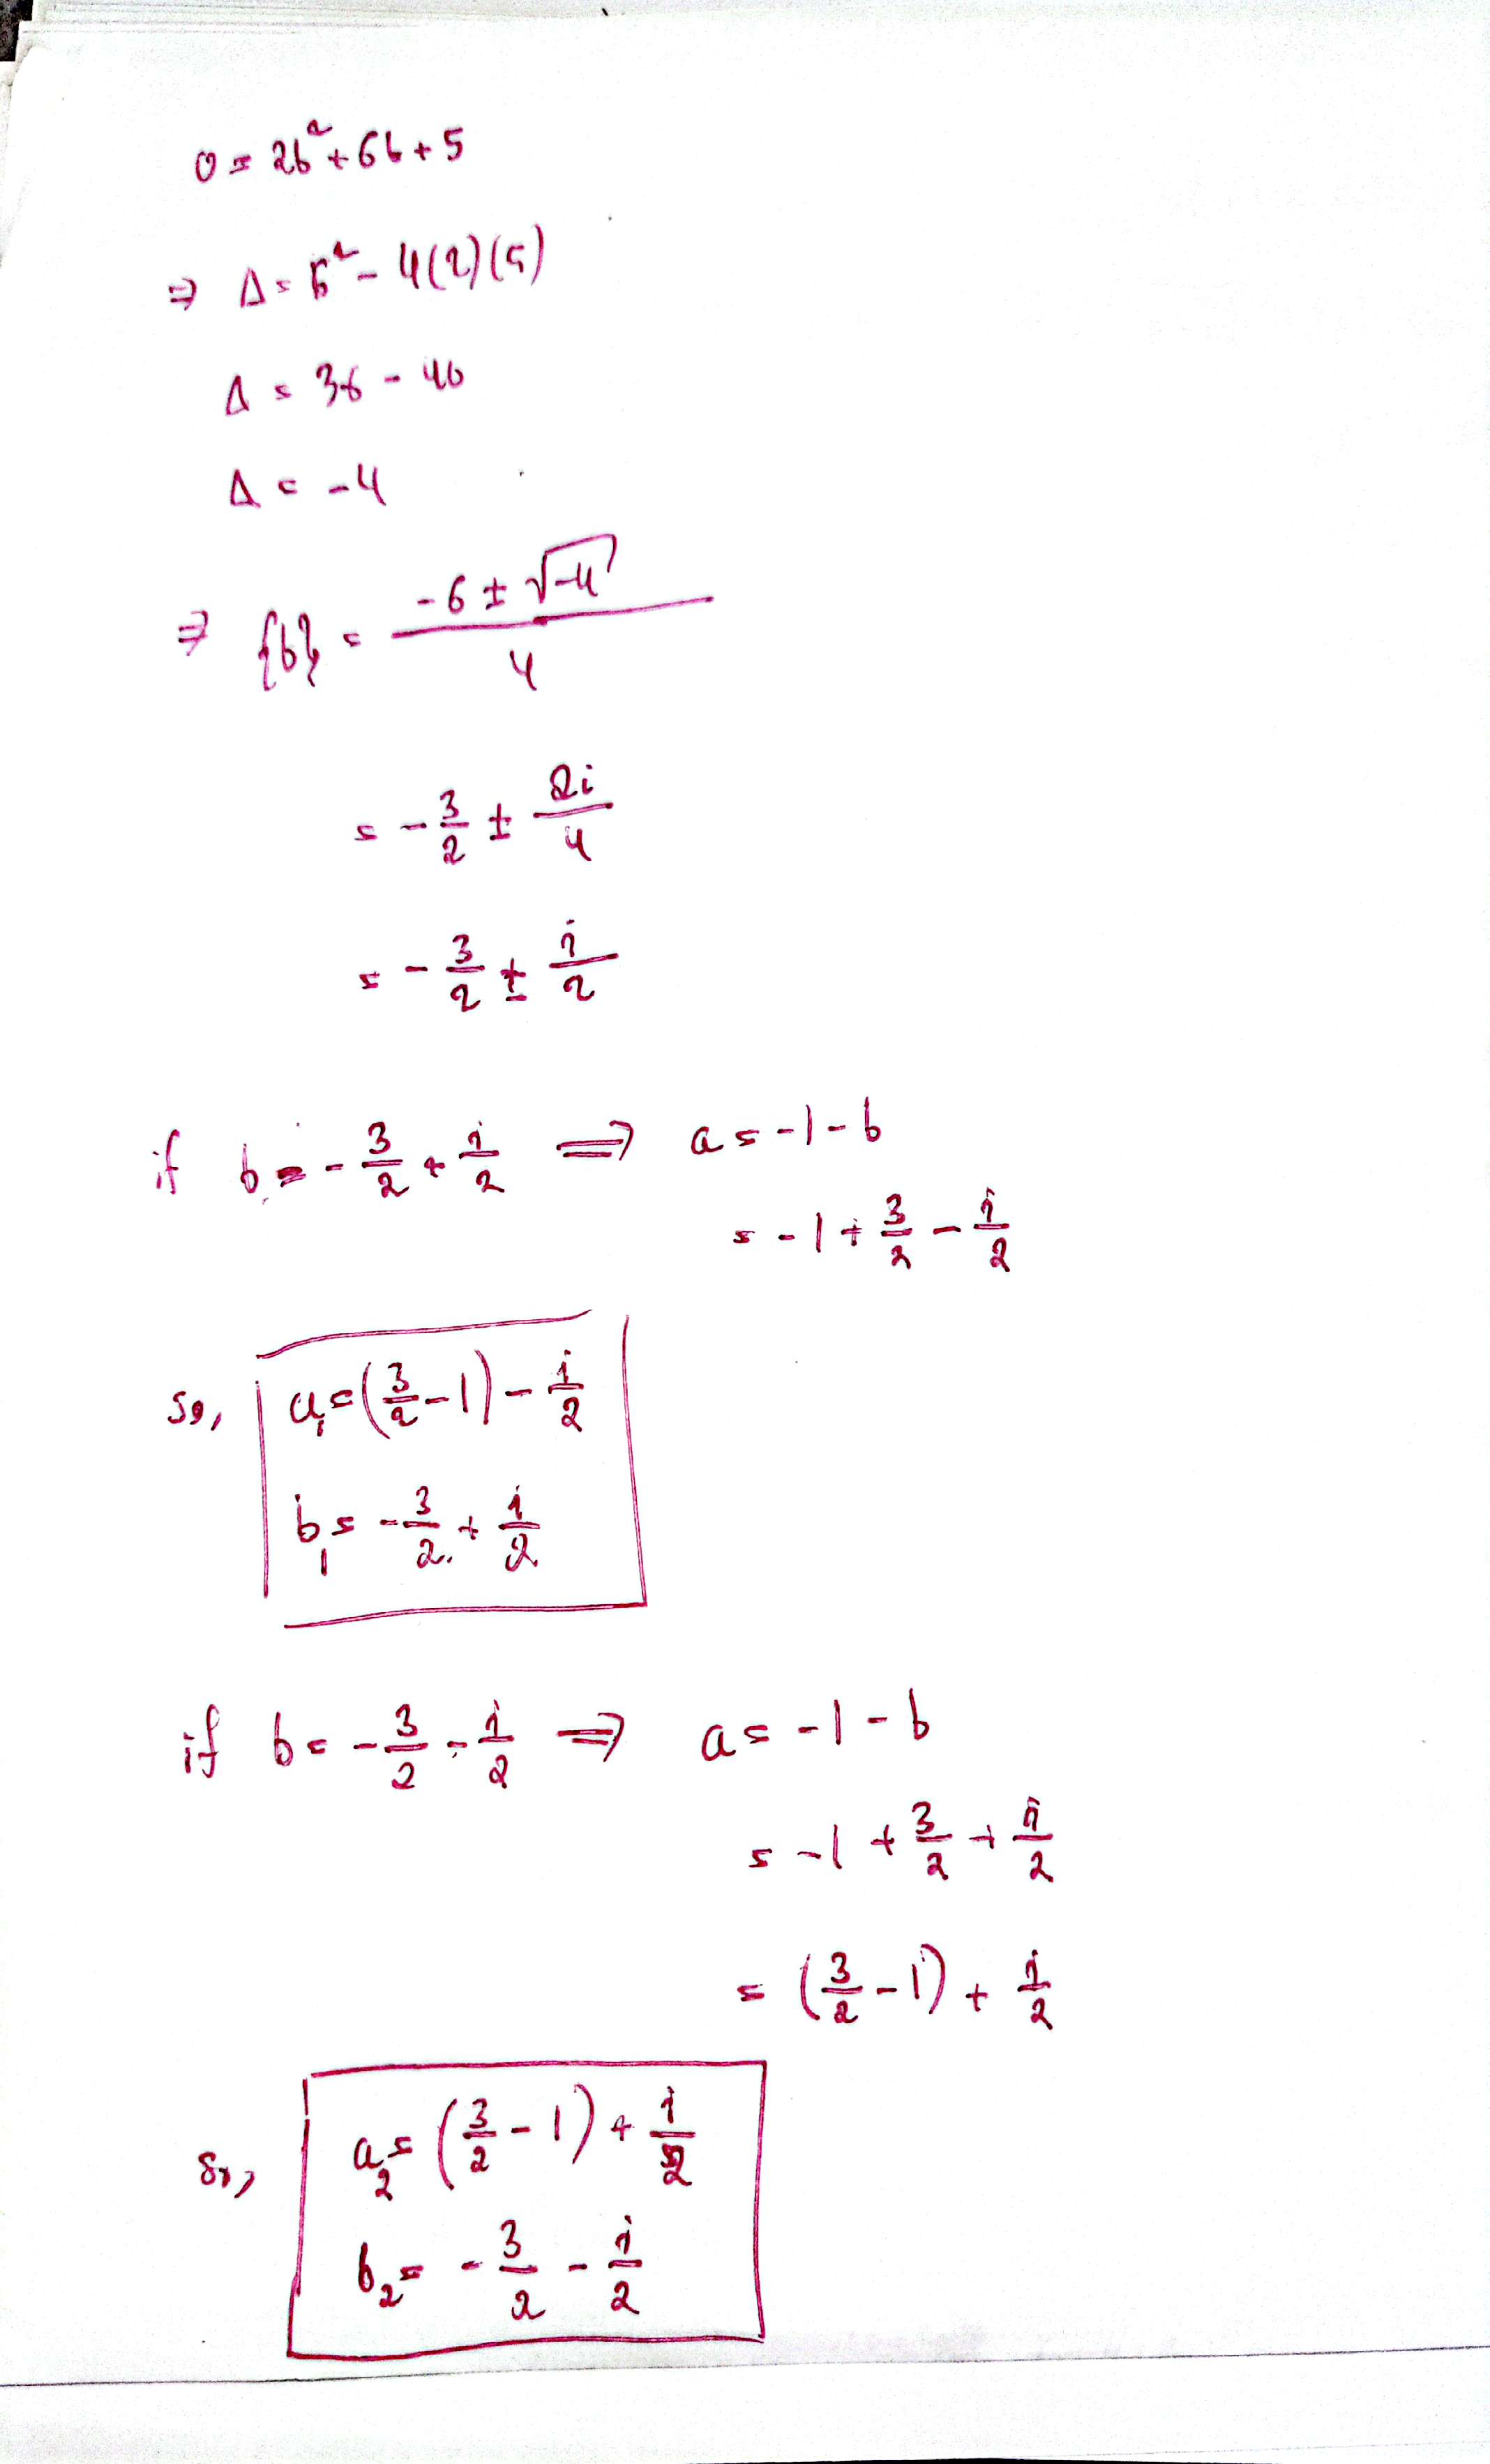 0 = 2b² + 6b + 5
⇒ Δ = 6² - 4(2)(5)
Δ = 36 - 40
Δ = -4
⇒ {b} = (-6 ± √-4)/4
= -3/2 ± 2i/4
= -3/2 ± i/2
if b = -3/2 + i/2 ⇒ a = -1 - b
= -1 + 3/2 - i/2
So, a₁ = (3/2 - 1) - i/2
b₁ = -3/2 + i/2
if b = -3/2 - i/2 ⇒ a = -1 - b
= -1 + 3/2 + i/2
= (3/2 - 1) + i/2
So, a₂ = (3/2 - 1) + i/2
b₂ = -3/2 - i/2